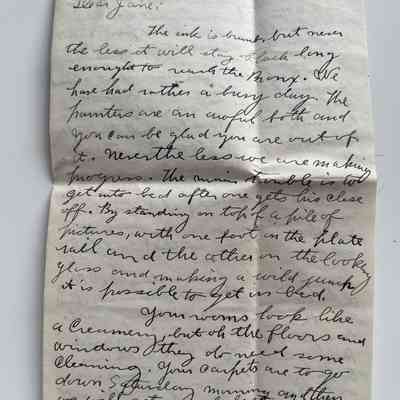 Dear Jane:
The ink is bum but never
the less it will stay black long
enought to reach the Bronx. We
have had rather a busy day. The
painters are an awful both and
you can be glad you are out of
it. Never the less we are making
progress. The main trouble is to
get into bed after one gets his close
off. By standing on top of a pile of
pictures, with one foot on the plate
rail and the other on the looking
glass and making a wild jump
it is possible to get in bed.
Your rooms look like
a Creamery, but oh the floors and
windows they do need some
cleaning. Your carpets are to go
down Saturday morning and then